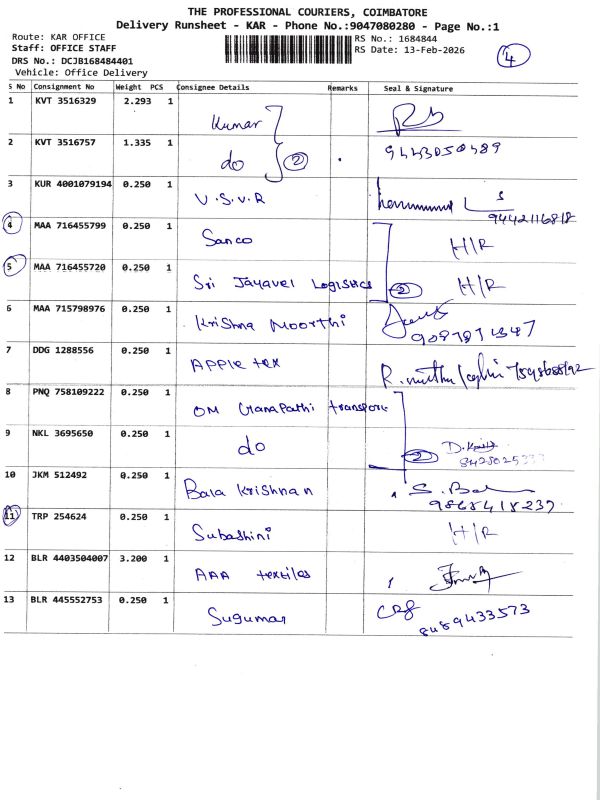 THE PROFESSIONAL COURIERS, COIMBATORE
Delivery Runsheet - KAR - Phone No.:9047080280 - Page No.:1
Route: KAR OFFICE
RS No.: 1684844
Staff: OFFICE STAFF
RS Date: 13-Feb-2026
4
DRS No.: DCJB168484401
Vehicle: Office Delivery
S No Consignment No Weight PCS Consignee Details Remarks Seal & Signature
1 KVT 3516329 2.293 1 Kumar
2 KVT 3516757 1.335 1 do 2 9443050489
3 KUR 4001079194 0.250 1 V.S.V.R 9442116818
4 MAA 716455799 0.250 1 Sanco H/R
5 MAA 716455720 0.250 1 Sri Jayavel Logistics 2 H/R
6 MAA 715798976 0.250 1 Krishna Moorthi
7 DDG 1288556 0.250 1 APPle tex
8 PNQ 758109222 0.250 1 OM Ganapathi transport
9 NKL 3695650 0.250 1 do 2
10 JKM 512492 0.250 1 Bala Krishnan
11 TRP 254624 0.250 1 Subashini H/R
12 BLR 4403504007 3.200 1 AAA textiles
13 BLR 445552753 0.250 1 Sugumar 8489433573